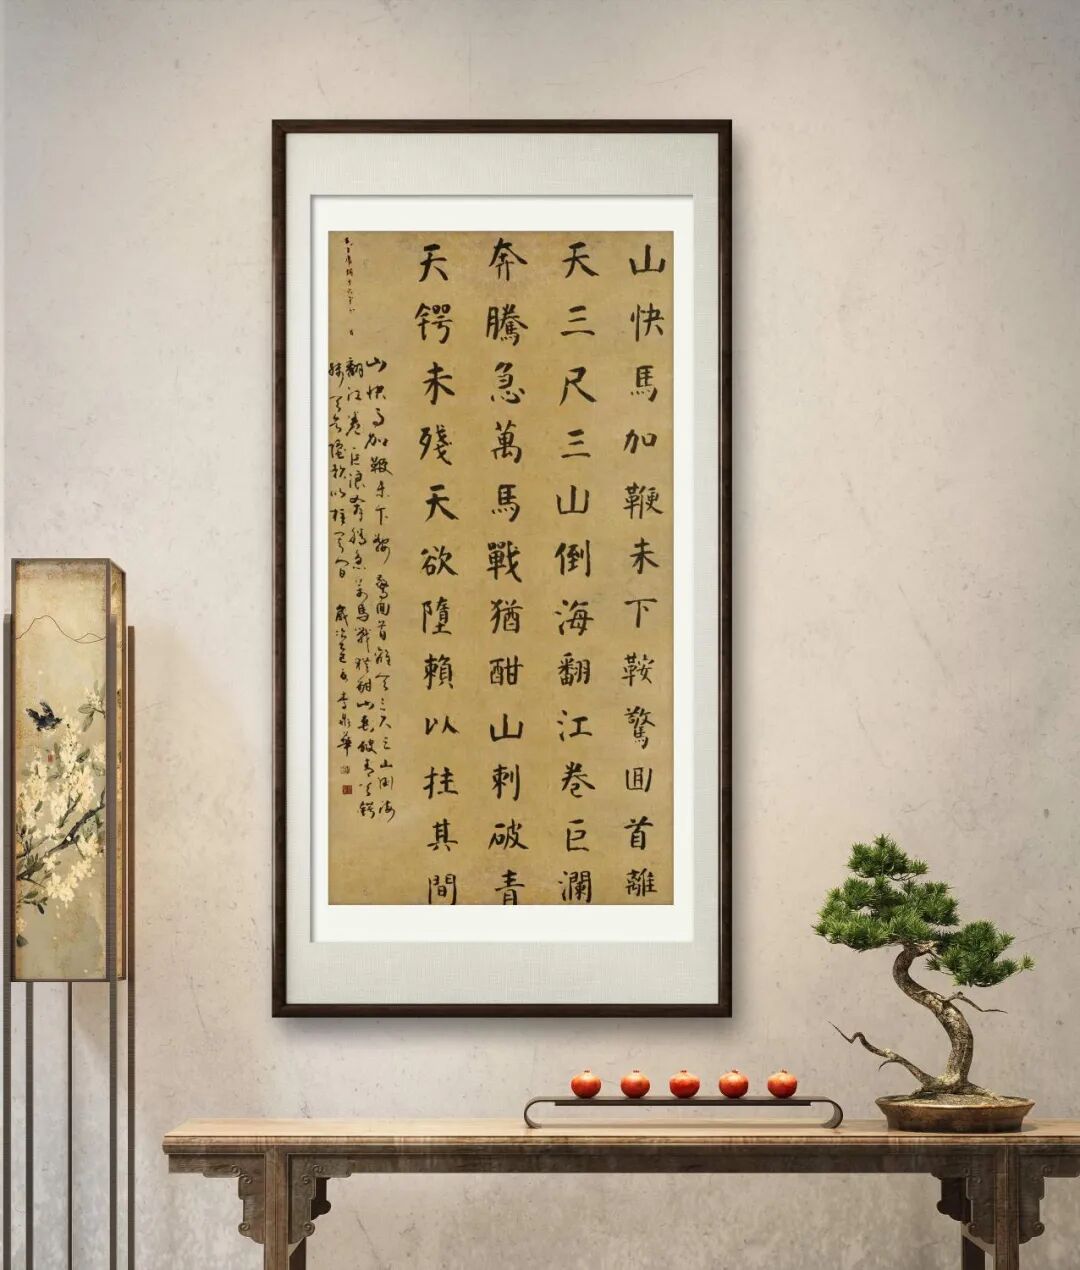 山快馬加鞭未下鞍驚囬首離
天三尺三山倒海翻江卷巨瀾
奔騰急萬馬戰猶酣山刺破青
天锷未殘天欲墮賴以拄其間
山快马加鞭未下鞍驚囬首離天三尺三山倒海
翻江卷巨浪奔腾急万馬戰猶酣山刺破青天锷
殘天欲墮賴以拄其間 歲次 李鼎華